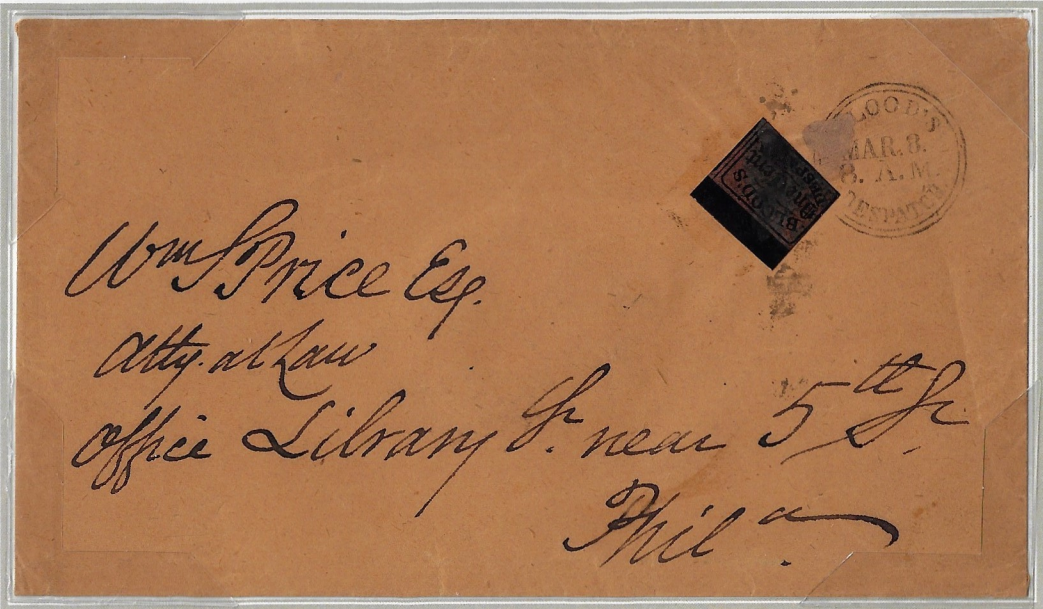 BLOOD'S
MAR. 8.
8. A.M.
DESPATCH
BLOOD'S
Wm S Price Esq.
Atty. at Law
Office Library St. near 5th St.
Phila.